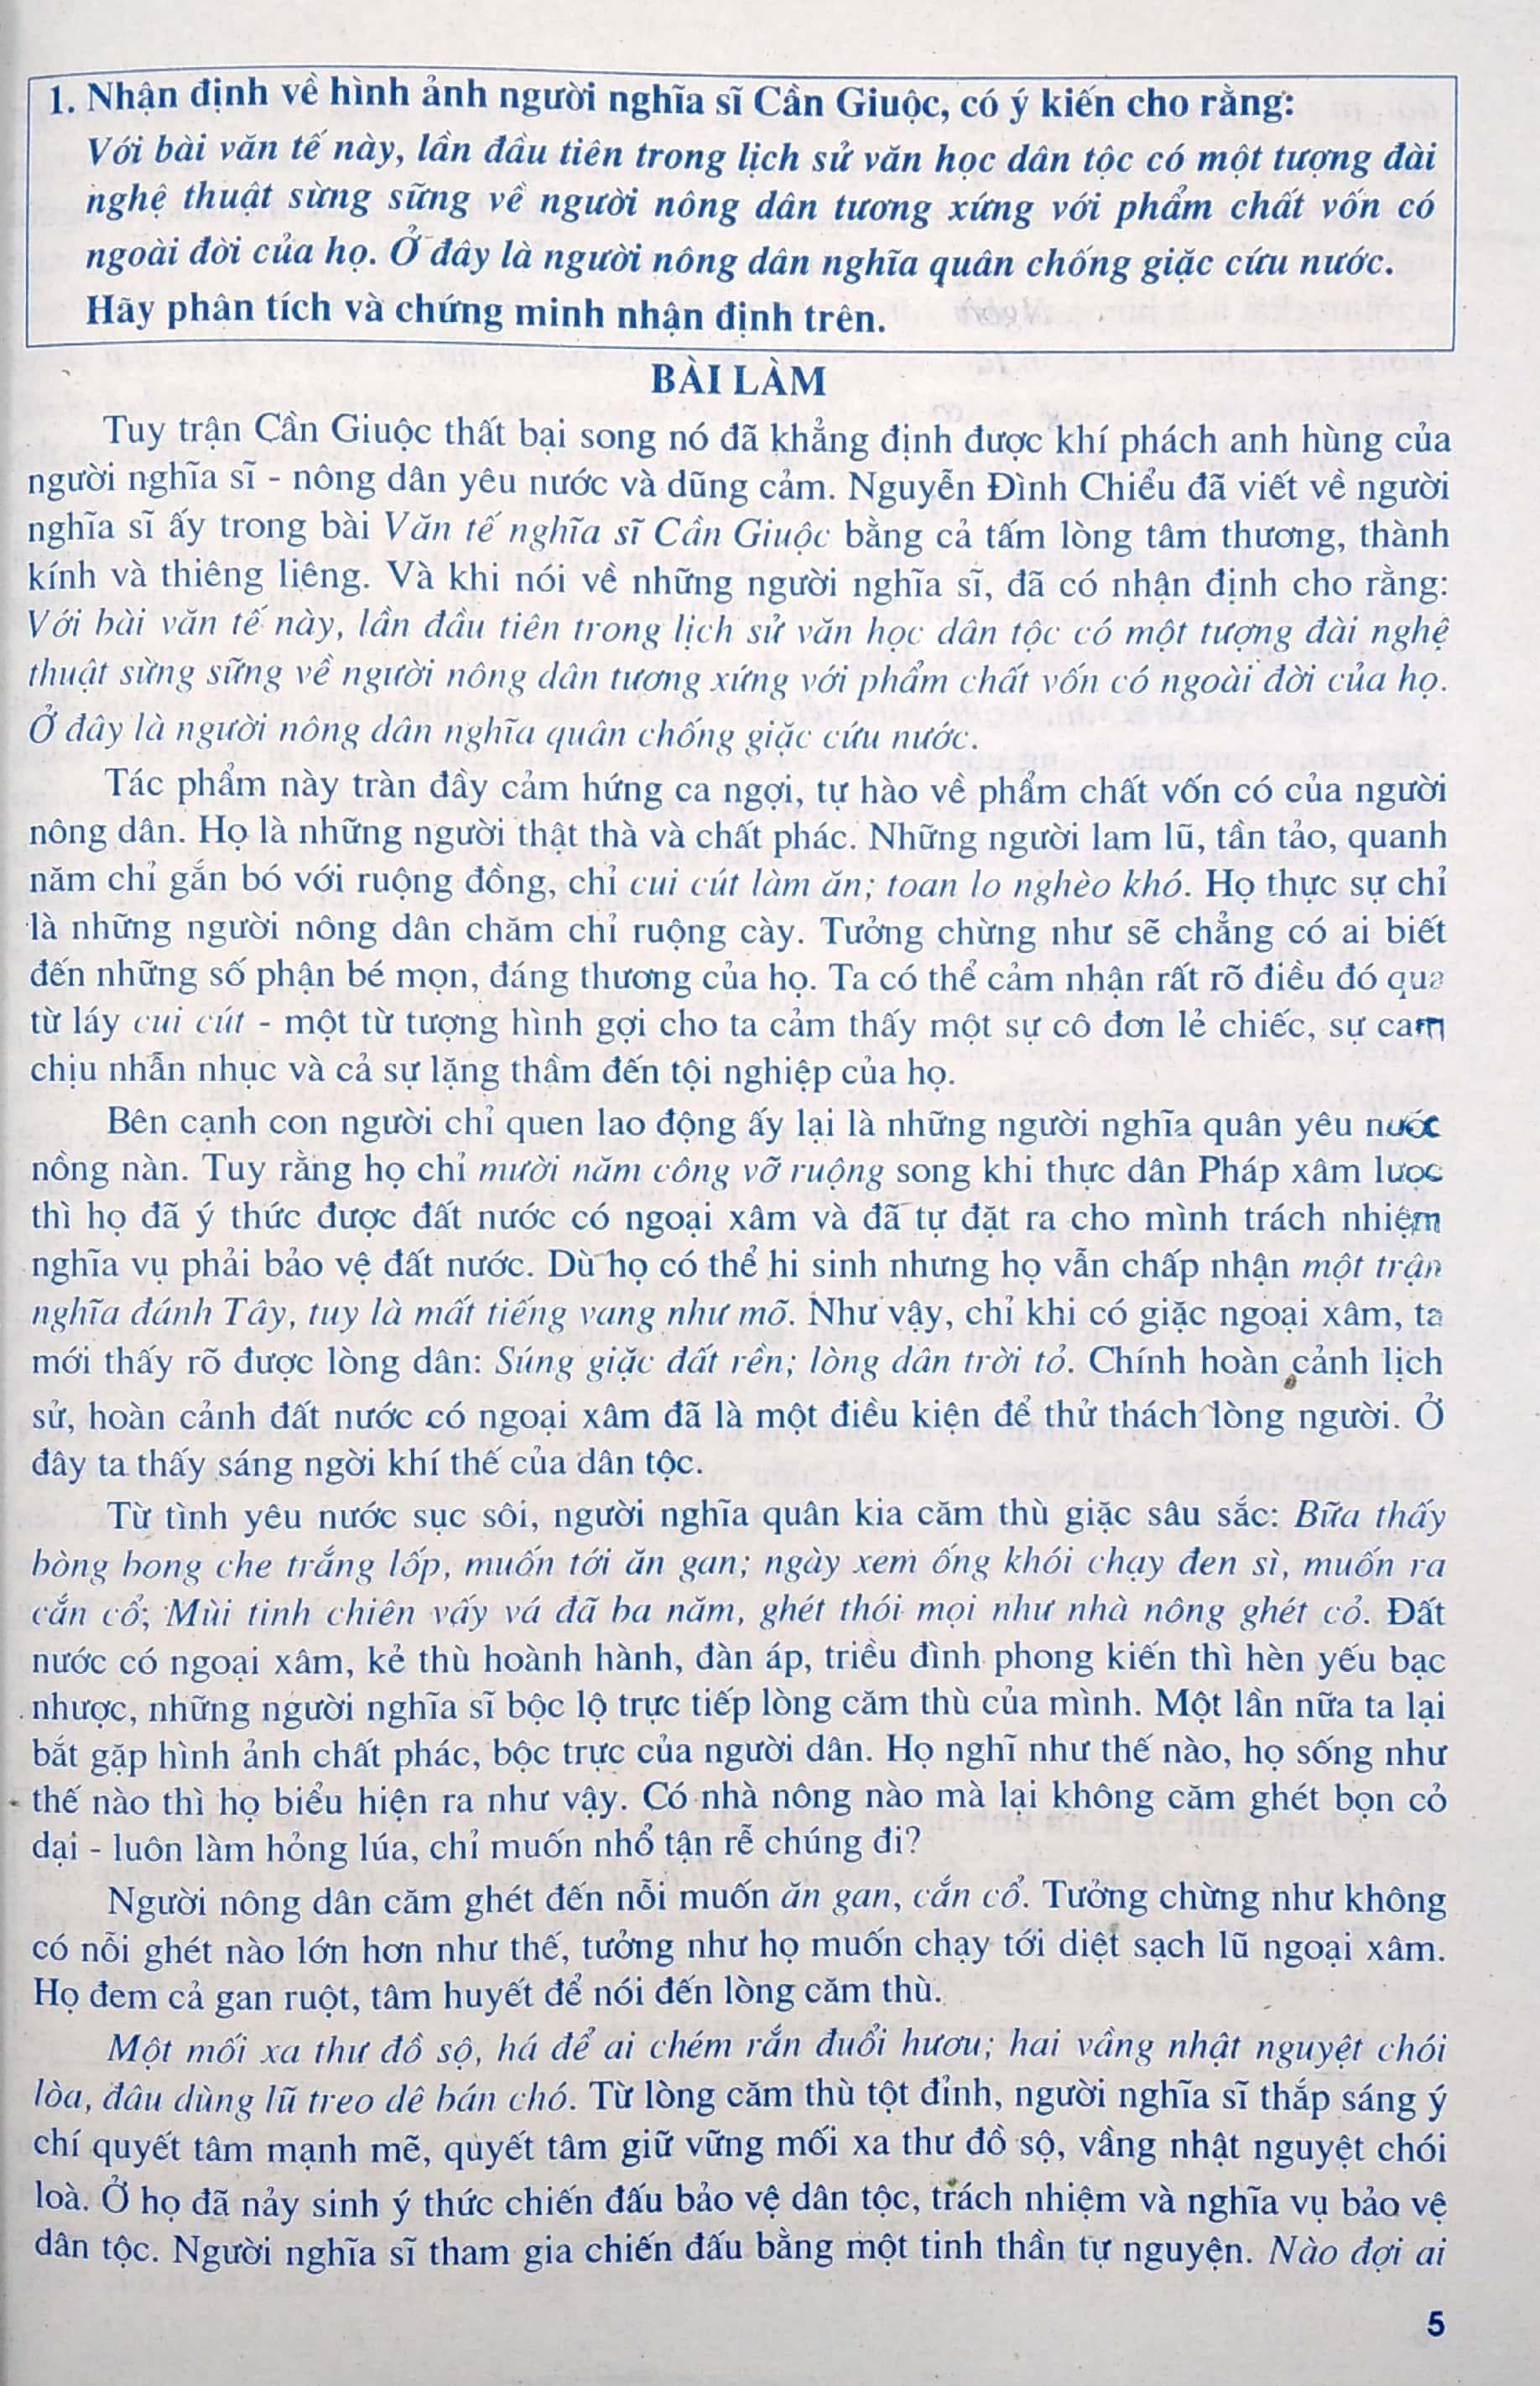 1. Nhận định về hình ảnh người nghĩa sĩ Cần Giuộc, có ý kiến cho rằng:
Với bài văn tế này, lần đầu tiên trong lịch sử văn học dân tộc có một tượng đài
nghệ thuật sừng sững về người nông dân tương xứng với phẩm chất vốn có
ngoài đời của họ. Ở đây là người nông dân nghĩa quân chống giặc cứu nước.
Hãy phân tích và chứng minh nhận định trên.
BÀI LÀM
Tuy trận Cần Giuộc thất bại song nó đã khẳng định được khí phách anh hùng của
người nghĩa sĩ - nông dân yêu nước và dũng cảm. Nguyễn Đình Chiểu đã viết về người
nghĩa sĩ ấy trong bài Văn tế nghĩa sĩ Cần Giuộc bằng cả tấm lòng tâm thương, thành
kính và thiêng liêng. Và khi nói về những người nghĩa sĩ, đã có nhận định cho rằng:
Với bài văn tế này, lần đầu tiên trong lịch sử văn học dân tộc có một tượng đài nghệ
thuật sừng sững về người nông dân tương xứng với phẩm chất vốn có ngoài đời của họ.
Ở đây là người nông dân nghĩa quân chống giặc cứu nước.
Tác phẩm này tràn đầy cảm hứng ca ngợi, tự hào về phẩm chất vốn có của người
nông dân. Họ là những người thật thà và chất phác. Những người lam lũ, tần tảo, quanh
năm chỉ gắn bó với ruộng đồng, chỉ cui cút làm ăn; toan lo nghèo khó. Họ thực sự chỉ
là những người nông dân chăm chỉ ruộng cày. Tưởng chừng như sẽ chẳng có ai biết
đến những số phận bé mọn, đáng thương của họ. Ta có thể cảm nhận rất rõ điều đó qua
từ láy cui cút - một từ tượng hình gợi cho ta cảm thấy một sự cô đơn lẻ chiếc, sự cam
chịu nhẫn nhục và cả sự lặng thầm đến tội nghiệp của họ.
Bên cạnh con người chỉ quen lao động ấy lại là những người nghĩa quân yêu nước
nồng nàn. Tuy rằng họ chỉ mười năm công vỡ ruộng song khi thực dân Pháp xâm lược
thì họ đã ý thức được đất nước có ngoại xâm và đã tự đặt ra cho mình trách nhiệm
nghĩa vụ phải bảo vệ đất nước. Dù họ có thể hi sinh nhưng họ vẫn chấp nhận một trận
nghĩa đánh Tây, tuy là mất tiếng vang như mõ. Như vậy, chỉ khi có giặc ngoại xâm, ta
mới thấy rõ được lòng dân: Súng giặc đất rền; lòng dân trời tỏ. Chính hoàn cảnh lịch
sử, hoàn cảnh đất nước có ngoại xâm đã là một điều kiện để thử thách lòng người. Ở
đây ta thấy sáng ngời khí thế của dân tộc.
Từ tình yêu nước sục sôi, người nghĩa quân kia căm thù giặc sâu sắc: Bữa thấy
bòng bong che trắng lốp, muốn tới ăn gan; ngày xem ống khói chạy đen sì, muốn ra
cắn cổ; Mùi tinh chiên vấy vá đã ba năm, ghét thói mọi như nhà nông ghét cỏ. Đất
nước có ngoại xâm, kẻ thù hoành hành, đàn áp, triều đình phong kiến thì hèn yếu bạc
nhược, những người nghĩa sĩ bộc lộ trực tiếp lòng căm thù của mình. Một lần nữa ta lại
bắt gặp hình ảnh chất phác, bộc trực của người dân. Họ nghĩ như thế nào, họ sống như
thế nào thì họ biểu hiện ra như vậy. Có nhà nông nào mà lại không căm ghét bọn cỏ
dại - luôn làm hỏng lúa, chỉ muốn nhổ tận rễ chúng đi?
Người nông dân căm ghét đến nỗi muốn ăn gan, cắn cổ. Tưởng chừng như không
có nỗi ghét nào lớn hơn như thế, tưởng như họ muốn chạy tới diệt sạch lũ ngoại xâm.
Họ đem cả gan ruột, tâm huyết để nói đến lòng căm thù.
Một mối xa thư đồ sộ, há để ai chém rắn đuổi hươu; hai vầng nhật nguyệt chói
lòa, đâu dùng lũ treo dê bán chó. Từ lòng căm thù tột đỉnh, người nghĩa sĩ thắp sáng ý
chí quyết tâm mạnh mẽ, quyết tâm giữ vững mối xa thư đồ sộ, vầng nhật nguyệt chói
loà. Ở họ đã nảy sinh ý thức chiến đấu bảo vệ dân tộc, trách nhiệm và nghĩa vụ bảo vệ
dân tộc. Người nghĩa sĩ tham gia chiến đấu bằng một tinh thần tự nguyện. Nào đợi ai
5